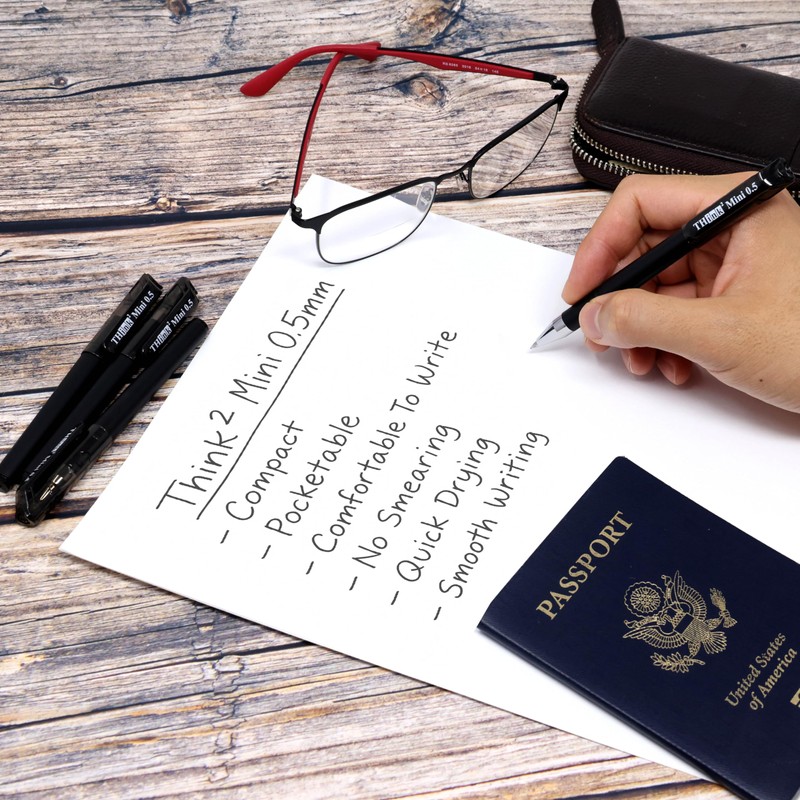 Think² Mini 0.5mm
- Compact
- Pocketable
- Comfortable To Write
- No Smearing
- Quick Drying
- Smooth Writing
THInk² Mini 0.5
THInk² Mini 0.5
THInk² Mini 0.5
PASSPORT
United States
of America